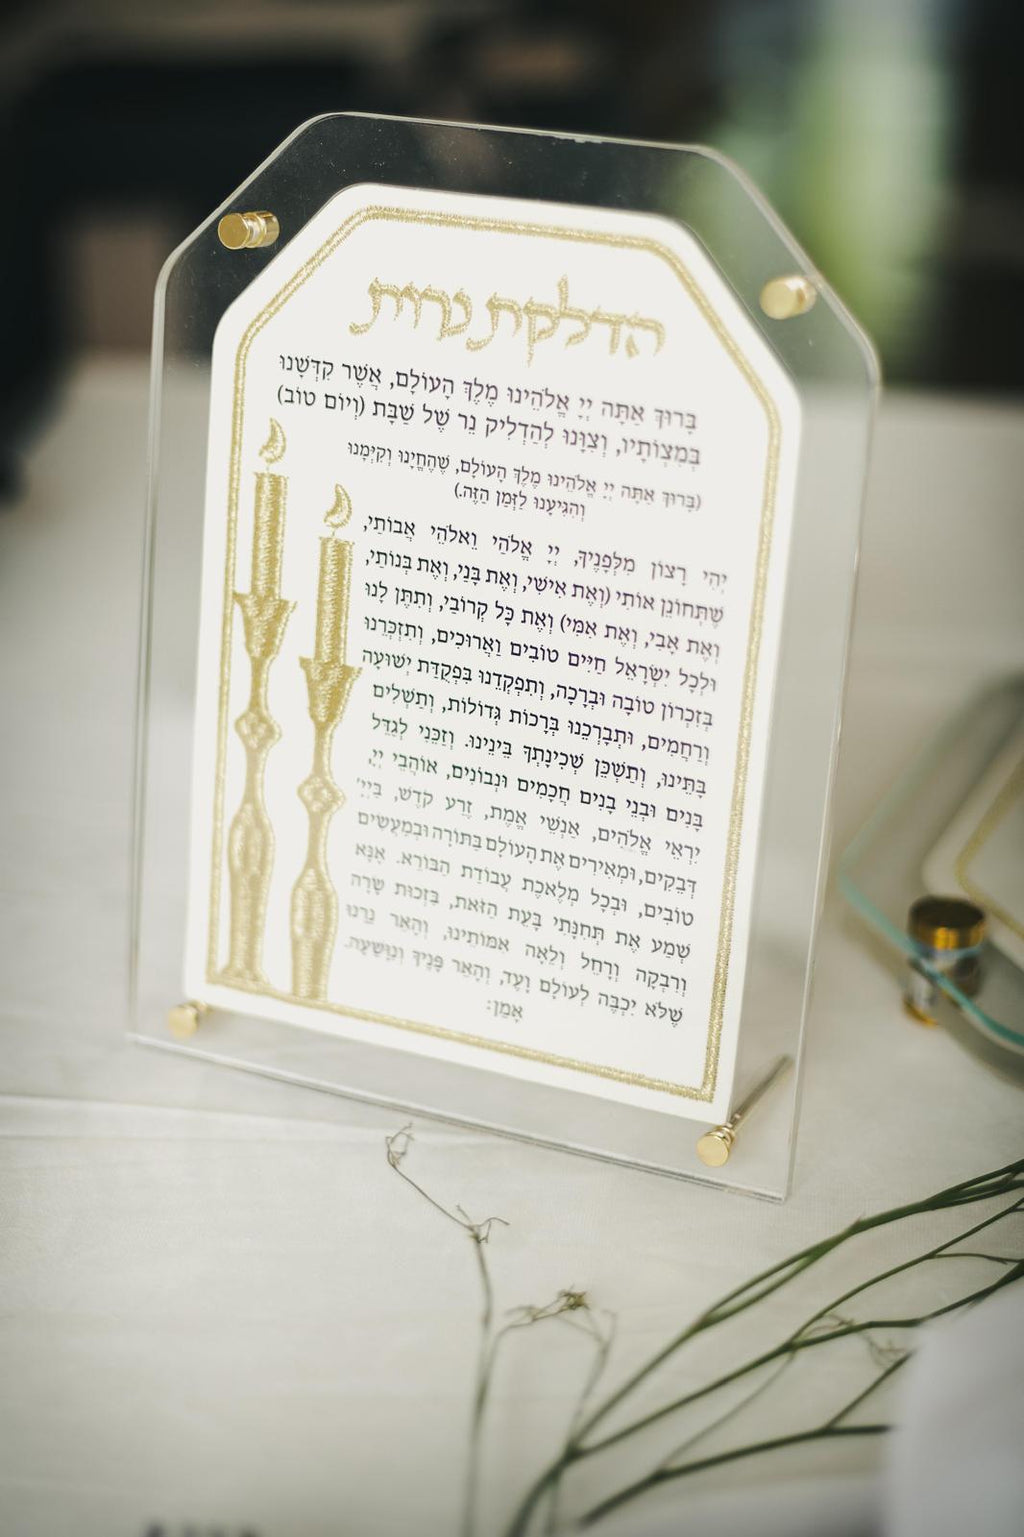 הדלקת נרות
בָּרוּךְ אַתָּה יְיָ אֱלֹהֵינוּ מֶלֶךְ הָעוֹלָם, אֲשֶׁר קִדְּשָׁנוּ
בְּמִצְוֹתָיו, וְצִוָּנוּ לְהַדְלִיק נֵר שֶׁל שַׁבָּת (וְיוֹם טוֹב)
(בָּרוּךְ אַתָּה יְיָ אֱלֹהֵינוּ מֶלֶךְ הָעוֹלָם, שֶׁהֶחֱיָנוּ וְקִיְּמָנוּ
וְהִגִּיעָנוּ לַזְּמַן הַזֶּה.)
יְהִי רָצוֹן מִלְּפָנֶיךָ, יְיָ אֱלֹהַי וֵאלֹהֵי אֲבוֹתַי,
שֶׁתְּחוֹנֵן אוֹתִי (וְאֶת אִישִׁי, וְאֶת בָּנַי, וְאֶת בְּנוֹתַי,
וְאֶת אָבִי, וְאֶת אִמִּי) וְאֶת כָּל קְרוֹבַי, וְתִתֶּן לָנוּ
וּלְכָל יִשְׂרָאֵל חַיִּים טוֹבִים וַאֲרוּכִים, וְתִזְכְּרֵנוּ
בְּזִכְרוֹן טוֹבָה וּבְרָכָה, וְתִפְקְדֵנוּ בִּפְקֻדַּת יְשׁוּעָה
וְרַחֲמִים, וּתְבָרְכֵנוּ בְּרָכוֹת גְּדוֹלוֹת, וְתַשְׁלִים
בָּתֵּינוּ, וְתַשְׁכֵּן שְׁכִינָתְךָ בֵּינֵינוּ. וְזַכֵּנִי לְגַדֵּל
בָּנִים וּבְנֵי בָנִים חֲכָמִים וּנְבוֹנִים, אוֹהֲבֵי יְיָ,
יִרְאֵי אֱלֹהִים, אַנְשֵׁי אֱמֶת, זֶרַע קֹדֶשׁ, בַּיְיָ
דְּבֵקִים, וּמְאִירִים אֶת הָעוֹלָם בַּתּוֹרָה וּבְמַעֲשִׂים
טוֹבִים, וּבְכָל מְלֶאכֶת עֲבוֹדַת הַבּוֹרֵא. אָנָּא
שְׁמַע אֶת תְּחִנָּתִי בָּעֵת הַזֹּאת, בִּזְכוּת שָׂרָה
וְרִבְקָה וְרָחֵל וְלֵאָה אִמּוֹתֵינוּ, וְהָאֵר נֵרֵנוּ
שֶׁלֹּא יִכְבֶּה לְעוֹלָם וָעֶד, וְהָאֵר פָּנֶיךָ וְנִוָּשֵׁעָה.
אָמֵן: